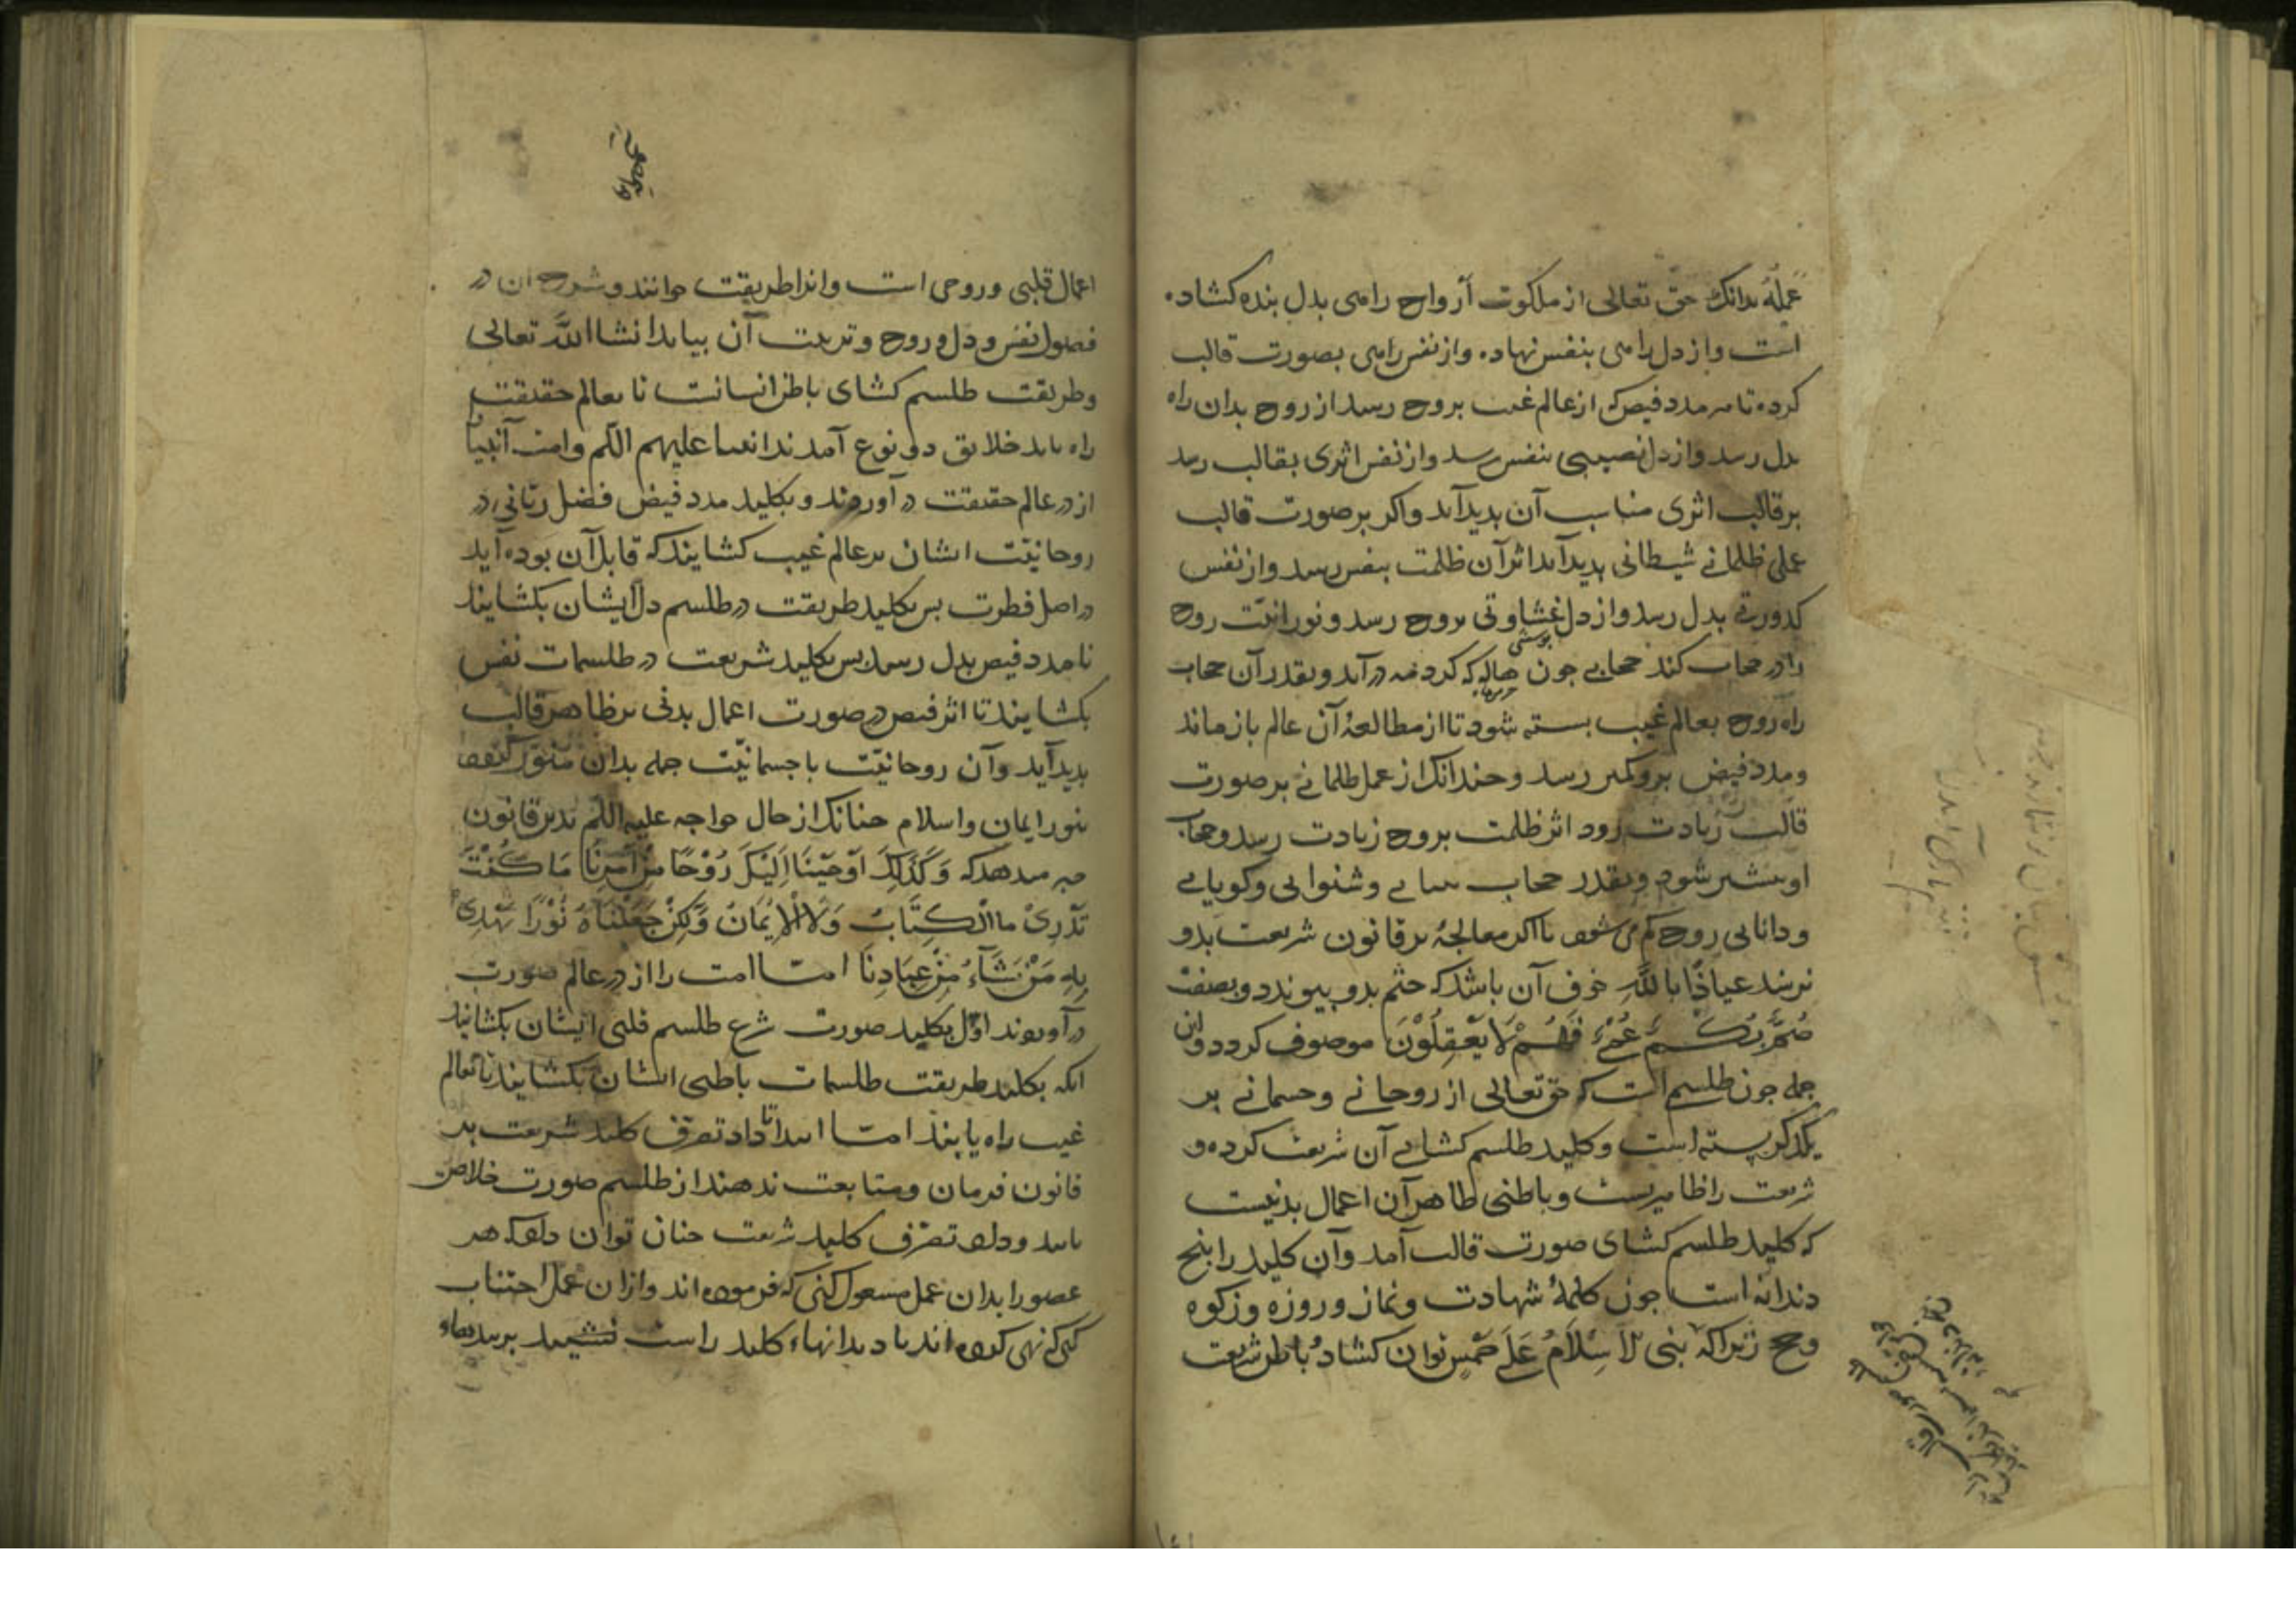 عَمَلَهُ بدانک حق تعالی از ملکوت ارواح راهی بدل بنده کشاده
است و از دل راهی بنفس نهاده و از نفس راهی بصورت قالب
کرده تا هر مدد فیض که از عالم غیب بروح رسد از روح بدان راه
بدل رسد و از دل نصیبی بنفس رسد و از نفس اثری بقالب رسد
بر قالب اثری مناسب آن بدید آید و اکر بر صورت قالب
عملی ظلمانی شیطانی بدید آید اثر آن ظلمت بنفس رسد و از نفس
کدورتی بدل رسد و از دل غشاوتی بروح رسد و نورانیت روح
را در حجاب کند حجابی جون هاله که کرد مه در آید و بقدر آن حجاب
راه روح بعالم غیب بسته شود تا از مطالعهٔ آن عالم باز ماند
و مدد فیض برو کمتر رسد و جندانک از عمل ظلمانی بر صورت
قالب زیادت رود اثر ظلمت بروح زیادت رسد و حجاب
او بیشتر شود و بقدر حجاب بینایی و شنوایی و کویایی
و دانایی روح کم می شود تا اکر معالجهٔ بر قانون شریعت بدو
نرسد عیاذًا بالله خوف آن باشد که ختم بدو بیوندد و بصفت
صُمٌّ بُكْمٌ عُمْيٌ فَهُمْ لَا يَعْقِلُوْنَ موصوف کردد و این
جمله جون طلسمی است که حق تعالی از روحانی و جسمانی بر
یکدکر بسته است و کلید طلسم کشای آن شریعت کرده و
شریعت را ظاهریست و باطنی ظاهر آن اعمال بدنیست
که کلید طلسم کشای صورت قالب آمد و آن کلید را بنج
دندانه است جون کلمهٔ شهادت و نماز و روزه و زکوه
و حج زیراکه بنی الاسلام علی خمس توان کشاد باطن شریعت
اعمال قلبی و روحی است و انرا طریقت خوانند و شرح ان در
فصول نفس و دل و روح و تربیت آن بیاید انشا الله تعالی
و طریقت طلسم کشای باطن انسانست تا بعالم حقیقت
راه یابد خلایق دو نوع آمدند انبیا علیهم السلم و امت انبیا
از در عالم حقیقت در آوردند و بکلید مدد فیض فضل ربانی در
روحانیت ایشان بر عالم غیب کشایند که قابل آن بوده آید
در اصل فطرت بس بکلید طریقت در طلسم دل ایشان بکشایند
تا مدد فیض بدل رسد بس بکلید شریعت در طلسمات نفس
بکشایند تا اثر فیض در صورت اعمال بدنی بر ظاهر قالب
بدید آید و آن روحانیت با جسمانیت جمله بدان منور کردد
بنور ایمان و اسلام جنانک از حال خواجه علیه السلم بدین قانون
خبر میدهد که وَكَذَلِكَ اَوْحَيْنَا اِلَيْكَ رُوْحًا مِنْ اَمْرِنَا مَا كُنْتَ
تَدْرِيْ ما الْكِتَابُ وَلَا الْاِيْمَانُ وَلَكِنْ جَعَلْنَاهُ نُوْرًا نَهْدِيْ
بِهِ مَنْ نَشَآءُ مِنْ عِبَادِنَا امت امت را از در عالم صورت
در آوردند اوّل بکلید صورت شرع طلسم قلبی ایشان بکشایند
انکه بکلید طریقت طلسمات باطنی ایشان بکشایند تا بعالم
غیب راه یابند امتا ابتدا تا داد تصرف کلید شریعت بر
قانون فرمان و متابعت ندهند از طلسم صورت خلاص
نیابند و داد تصرف کلید شریعت جنان توان داد که هر
عضو را بدان عمل مشغول کنی که فرموده اند و از ان عمل اجتناب
کنی که نهی کرده اند تا دندانهاء کلید راست نشیند